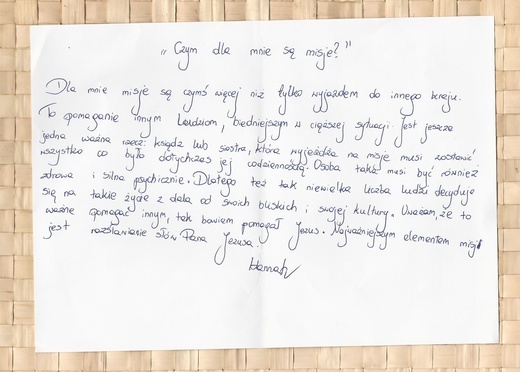 „Czym dla mnie są misje?"
Dla mnie misje są czymś więcej niż tylko wyjazdem do innego kraju.
To pomaganie innym ludziom, biedniejszym w cięższej sytuacji. Jest jeszcze
jedna ważna rzecz: ksiądz lub siostra, która wyjeżdża na misje musi zostawić
wszystko co było dotychczas jej codziennością. Osoba taka musi być również
zdrowa i silna psychicznie. Dlatego też tak niewielka liczba ludzi decyduje
się na takie życie z dala od swoich bliskich i swojej kultury. Uważam, że to
ważne pomagać innym, tak bowiem pomagał Jezus. Najważniejszym elementem misji
jest rozsławianie słów Pana Jezusa.
Hannah